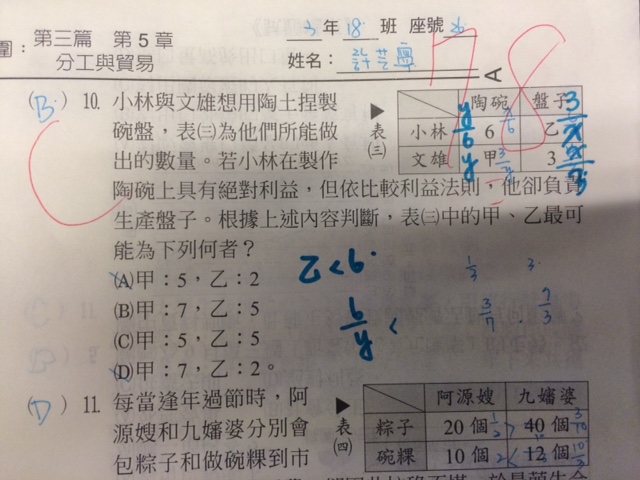 圍：第三篇 第5章
分工與貿易
3年18班 座號26
姓名：
78
A
(B) 10. 小林與文雄想用陶土捏製
碗盤，表㈢為他們所能做
出的數量。若小林在製作
陶碗上具有絕對利益，但依比較利益法則，他卻負責
生產盤子。根據上述內容判斷，表㈢中的甲、乙最可
能為下列何者？
(A)甲：5，乙：2
(B)甲：7，乙：5
(C)甲：5，乙：5
(D)甲：7，乙：2。
▶表㈢
陶碗 盤子
小林 6 乙
文雄 甲 3
乙<6.
6/y <
1/3 3.
3/7 7/3
(D) 11. 每當逢年過節時，阿
源嫂和九嬸婆分別會
包粽子和做碗粿到市
▶表㈣
阿源嫂 九嬸婆
粽子 20個 40個
碗粿 10個 12個